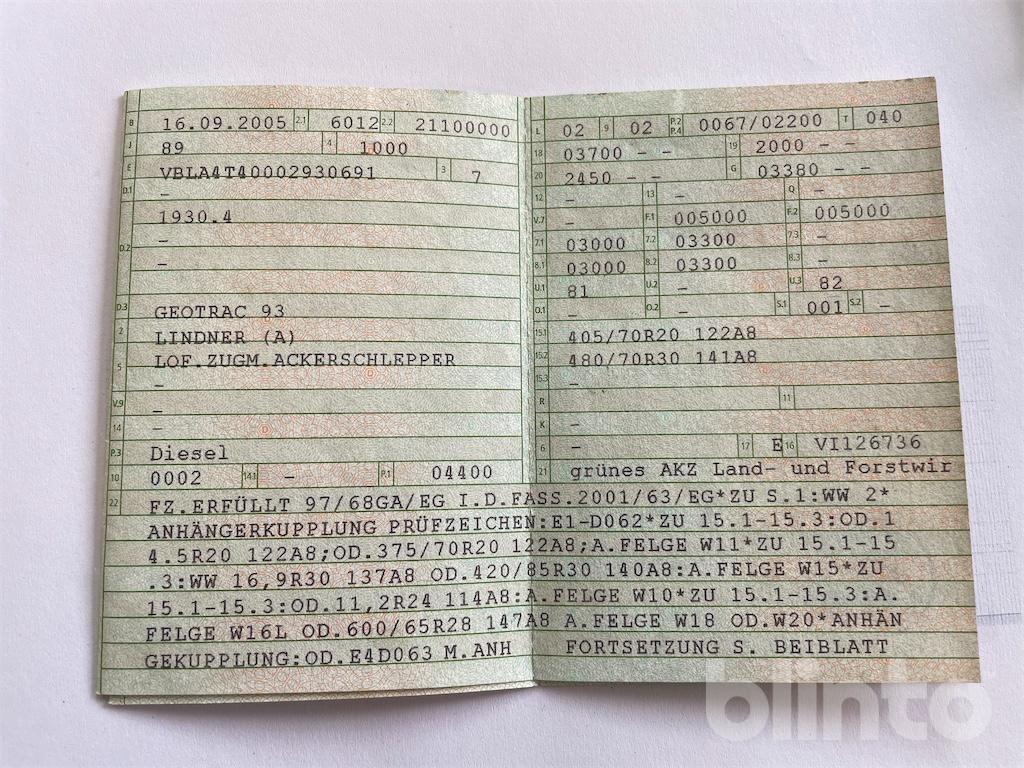 B 16.09.2005 2.1 6012 2.2 21100000
J 89 4 1000
E VBLA4T40002930691 3 7
D.1 –
1930.4
D.2 –
–
D.3 GEOTRAC 93
2 LINDNER (A)
5 LOF.ZUGM.ACKERSCHLEPPER
–
V.9 –
14 –
P.3 Diesel
10 0002 14.1 – P.1 04400
L 02 9 02 P.2 P.4 0067/02200 T 040
18 03700 – – 19 2000 – –
20 2450 – – G 03380 – –
12 – 13 – Q –
V.7 – F.1 005000 F.2 005000
7.1 03000 7.2 03300 7.3 –
8.1 03000 8.2 03300 8.3 –
U.1 81 U.2 – U.3 82
O.1 – O.2 – S.1 001 S.2 –
15.1 405/70R20 122A8
15.2 480/70R30 141A8
15.3 –
R – 11
K –
6 – 17 E 16 VI126736
21 grünes AKZ Land- und Forstwir
22 FZ.ERFÜLLT 97/68GA/EG I.D.FASS.2001/63/EG*ZU S.1:WW 2*
ANHÄNGERKUPPLUNG PRÜFZEICHEN:E1-D062*ZU 15.1-15.3:OD.1
4.5R20 122A8;OD.375/70R20 122A8;A.FELGE W11*ZU 15.1-15
.3:WW 16,9R30 137A8 OD.420/85R30 140A8:A.FELGE W15*ZU
15.1-15.3:OD.11,2R24 114A8:A.FELGE W10*ZU 15.1-15.3:A.
FELGE W16L OD.600/65R28 147A8 A.FELGE W18 OD.W20*ANHÄN
GEKUPPLUNG:OD.E4D063 M.ANH FORTSETZUNG S. BEIBLATT
blinto